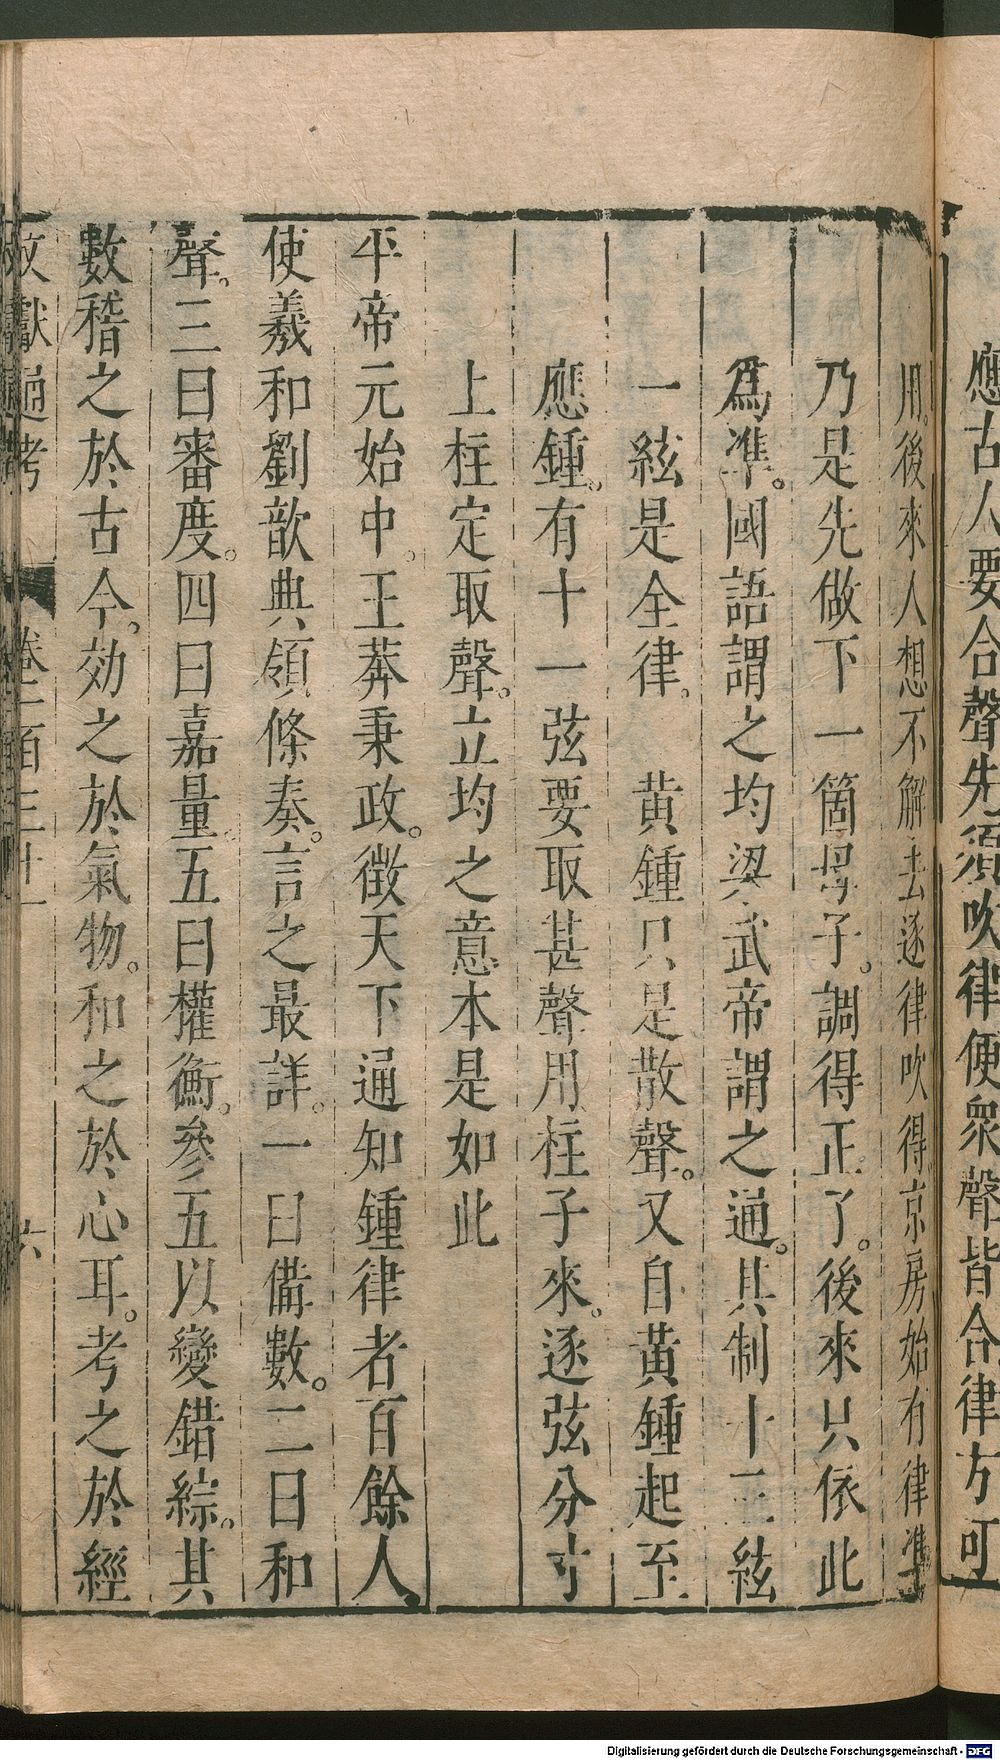 應古人要合聲先須吹律便衆聲皆合律方可
用。後來人想不解去逐律吹得京房始有律準
乃是先做下一箇母子。調得正了。後來只依此
爲準。國語謂之均梁武帝謂之通。其制十三絃
一絃是全律。黃鍾只是散聲。又自黃鍾起至
應鍾。有十一弦要取甚聲用柱子來。逐弦分寸
上柱定取聲。立均之意本是如此
平帝元始中。王莽秉政。徵天下通知鍾律者百餘人。
使羲和劉歆典領條奏。言之最詳。一曰備數。二曰和
聲。三曰審度。四曰嘉量。五曰權衡。參五以變錯綜。其
數稽之於古今。効之於氣物。和之於心耳。考之於經
文獻通考 卷一百三十一 六
Digitalisierung gefördert durch die Deutsche Forschungsgemeinschaft - DFG